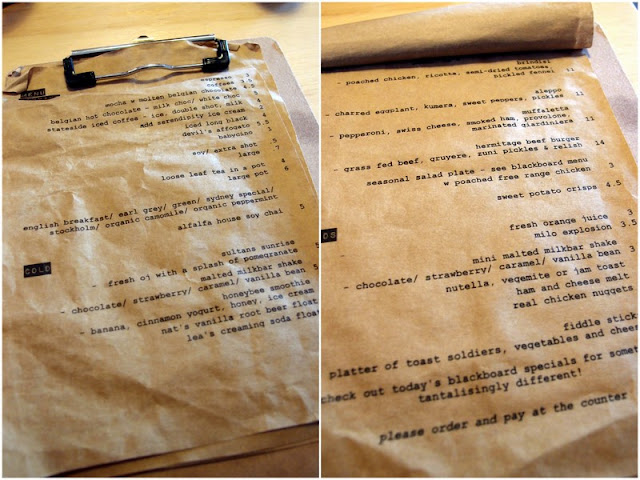 MENU
espresso 3
coffees 3.5
mocha w molten belgian chocolate 4
belgian hot chocolate - milk choc/ white choc 4
stateside iced coffee - ice, double shot, milk
add serendipity ice cream
iced long black 4
devil's affogato 4.5
babycino 1
soy/ extra shot .5
large .7
loose leaf tea in a pot 4
large pot 6
english breakfast/ earl grey/ green/ sydney special/
stockholm/ organic camomile/ organic peppermint
alfalfa house soy chai 5
COLD
sultans sunrise
- fresh oj with a splash of pomegranate 5
malted milkbar shake
- chocolate/ strawberry/ caramel/ vanilla bean 5
honeybee smoothie
- banana, cinnamon yogurt, honey, ice cream
nat's vanilla root beer float
lea's creaming soda float
brindisi
- poached chicken, ricotta, semi-dried tomatoes,
pickled fennel 11
aleppo
- charred eggplant, kumera, sweet peppers,
pickles 11
muffaletta
- pepperoni, swiss cheese, smoked ham, provolone,
marinated giardiniera 11
hermitage beef burger
- grass fed beef, gruyere, zuni pickles & relish 14
seasonal salad plate - see blackboard menu
w poached free range chicken 3
sweet potato crisps 4.5
DS
fresh orange juice 3
milo explosion 3.5
mini malted milkbar shake
- chocolate/ strawberry/ caramel/ vanilla bean
nutella, vegemite or jam toast
ham and cheese melt
real chicken nuggets
fiddle stick
platter of toast soldiers, vegetables and chees
check out today's blackboard specials for somet
tantalisingly different!
please order and pay at the counter